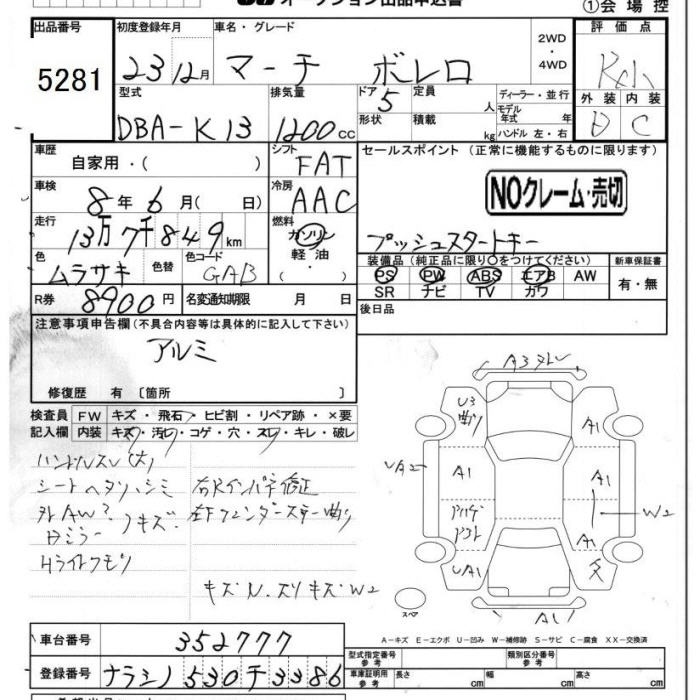 オークション出品申込書
①会場控
出品番号 初度登録年月 車名・グレード 評価点
5281 23 12月 マーチ ボレロ 2WD・4WD
型式 排気量 ドア 定員 ディーラー・並行
DBA-K13 1200cc 5 人 モデル年式 年
形状 積載 kg ハンドル 左・右
外装 内装
D C
車歴 自家用・( ) シフト FAT
セールスポイント (正常に機能するものに限ります)
車検 8年6月( 日) 冷房 AAC
NOクレーム・売切
走行 13万7千849km 燃料 ガソリン・軽油・
プッシュスタートキー
色 ムラサキ 色替 色コード GAB
装備品(純正品に限り〇をつけてください) 新車保証書
PS PW ABS エアB AW 有・無
SR ナビ TV カワ
R券 8900円 名変通知期限 月 日
後日品
注意事項申告欄(不具合内容等は具体的に記入して下さい)
アルミ
修復歴 有〔箇所 〕
検査員 FW キズ・飛石・ヒビ割・リペア跡・×要
記入欄 内装 キズ・汚レ・コゲ・穴・スレ・キレ・破レ
ハンドルスレ(大)
シートヘタリ・シミ 右Rインパネ修正
外AW? 左Fフェンダーステー曲り
ロミラー キズ
Hライトクモリ
キズN.スリキズW2
A3ヌレ
U3
曲り
A1
UA2
A1
A1
W2
A1
UA1
A1
スペア
A-キズ E-エクボ U-凹み W-補修跡 S-サビ C-腐食 XX-交換済
車台番号 352777
型式指定番号 参考 類別区分番号 参考
登録番号 ナラシノ530チ3386
車庫証明用 参考 長さ cm 幅 cm 高さ cm